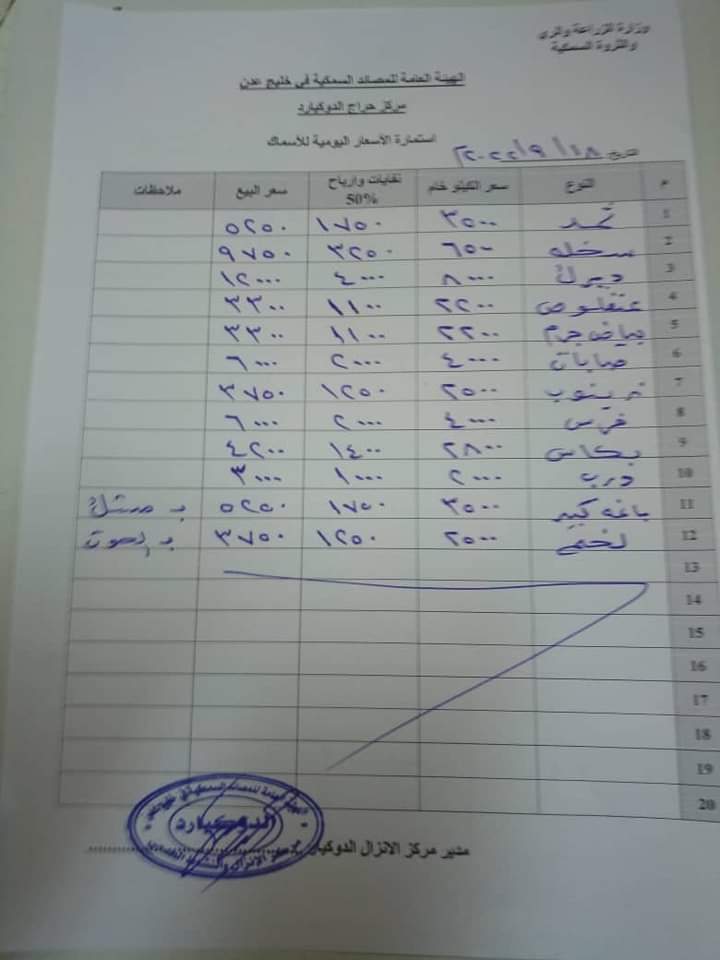 وزارة الزراعة والري
والثروة السمكية
الهيئة العامة للمصائد السمكية في خليج عدن
مركز حراج الدوكيارد
استمارة الأسعار اليومية للأسماك
التاريخ ١٨/٩/٢٠٢٢
م النوع سعر الكيلو خام نفايات وارباح 50% سعر البيع ملاحظات
1 ثمد ٣٥٠٠ ١٧٥٠ ٥٢٥٠
2 سخله ٦٥٠٠ ٣٢٥٠ ٩٧٥٠
3 ديرك ٨٠٠٠ ٤٠٠٠ ١٢٠٠٠
4 عنفلوص ٢٢٠٠ ١١٠٠ ٣٣٠٠
5 بياض جرم ٢٢٠٠ ١١٠٠ ٣٣٠٠
6 صابات ٤٠٠٠ ٢٠٠٠ ٦٠٠٠
7 زينوب ٢٥٠٠ ١٢٥٠ ٣٧٥٠
8 فرس ٤٠٠٠ ٢٠٠٠ ٦٠٠٠
9 بكاس ٢٨٠٠ ١٤٠٠ ٤٢٠٠
10 درب ٢٠٠٠ ١٠٠٠ ٣٠٠٠
11 باغه كبير ٣٥٠٠ ١٧٥٠ ٥٢٥٠
12 لخمي ٢٥٠٠ ١٢٥٠ ٣٧٥٠
13
14
15
16
17
18
19
20
مدير مركز الانزال الدوكيارد
الدوكيارد